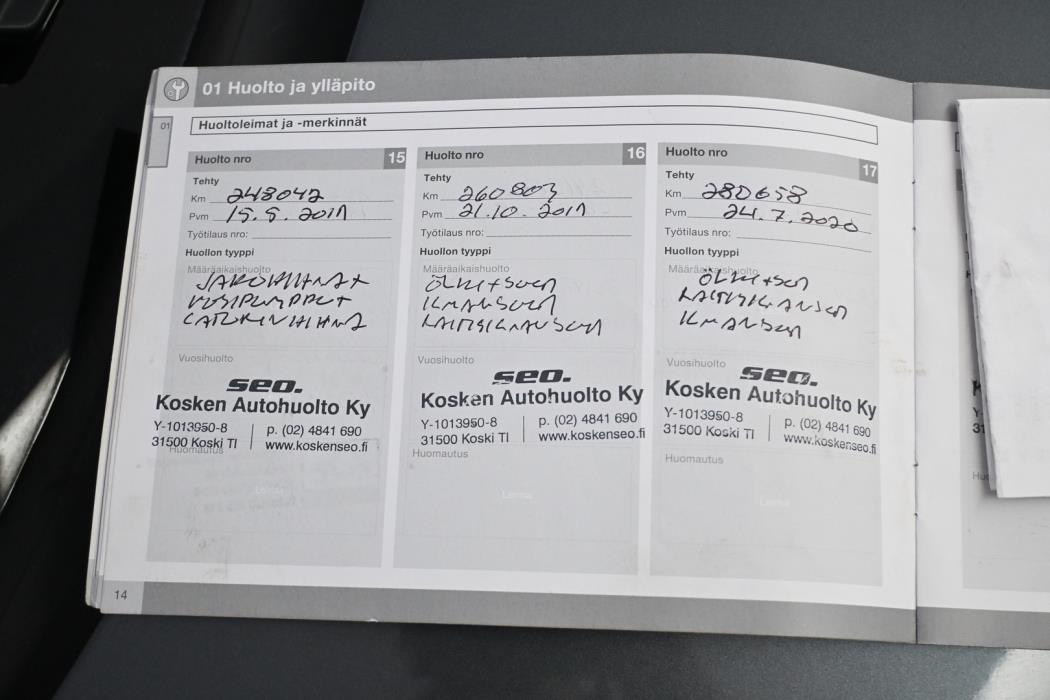 01 Huolto ja ylläpito
01
Huoltoleimat ja -merkinnät
Huolto nro 15
Tehty
Km 248042
Pvm 15.5.2019
Työtilaus nro:
Huollon tyyppi
Määräaikaishuolto
JAKOHIHNA+
VESIPUMPPU+
LATURINHIHNA
Vuosihuolto
seo.
Kosken Autohuolto Ky
Y-1013950-8
31500 Koski Tl
p. (02) 4841 690
www.koskenseo.fi
Huomautus
Leima
Huolto nro 16
Tehty
Km 260803
Pvm 21.10.2019
Työtilaus nro:
Huollon tyyppi
Määräaikaishuolto
ÖLJY+SUOD
ILMANSUOD
RAITISILMANSUOD
Vuosihuolto
seo.
Kosken Autohuolto Ky
Y-1013950-8
31500 Koski Tl
p. (02) 4841 690
www.koskenseo.fi
Huomautus
Leima
Huolto nro 17
Tehty
Km 280658
Pvm 24.7.2020
Työtilaus nro:
Huollon tyyppi
Määräaikaishuolto
ÖLJY+SUOD
RAITISILMANSUOD
ILMANSUOD
Vuosihuolto
seo.
Kosken Autohuolto Ky
Y-1013950-8
31500 Koski Tl
p. (02) 4841 690
www.koskenseo.fi
Huomautus
Leima
14